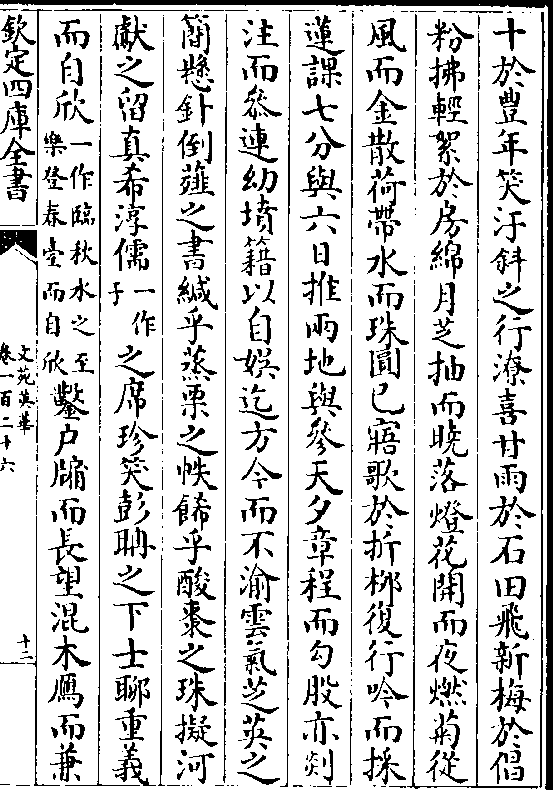 十於豐年笑汙斜之行潦喜甘雨於石田飛新梅於倡
粉拂輕絮於房綿月芝抽而曉落燈花開而夜燃菊從
風而金散荷帶水而珠圓已寤歌於折柳復行吟而採
蓮課七分與六日推兩地與參天夕章程而勾股亦剡
注而參連幼墳籍以自娯迄方今而不渝雲氣芝英之
簡懸針倒薤之書緘乎蒸栗之帙餙乎酸棗之珠擬河
獻之留真希淳儒一作子之席珍笑彭聃之下士聊重義
而自欣一作臨秋水之至樂登春臺而自欣鑿戶牖而長望混木鴈而兼
欽定四庫全書
文苑英華
卷一百二十六
十二